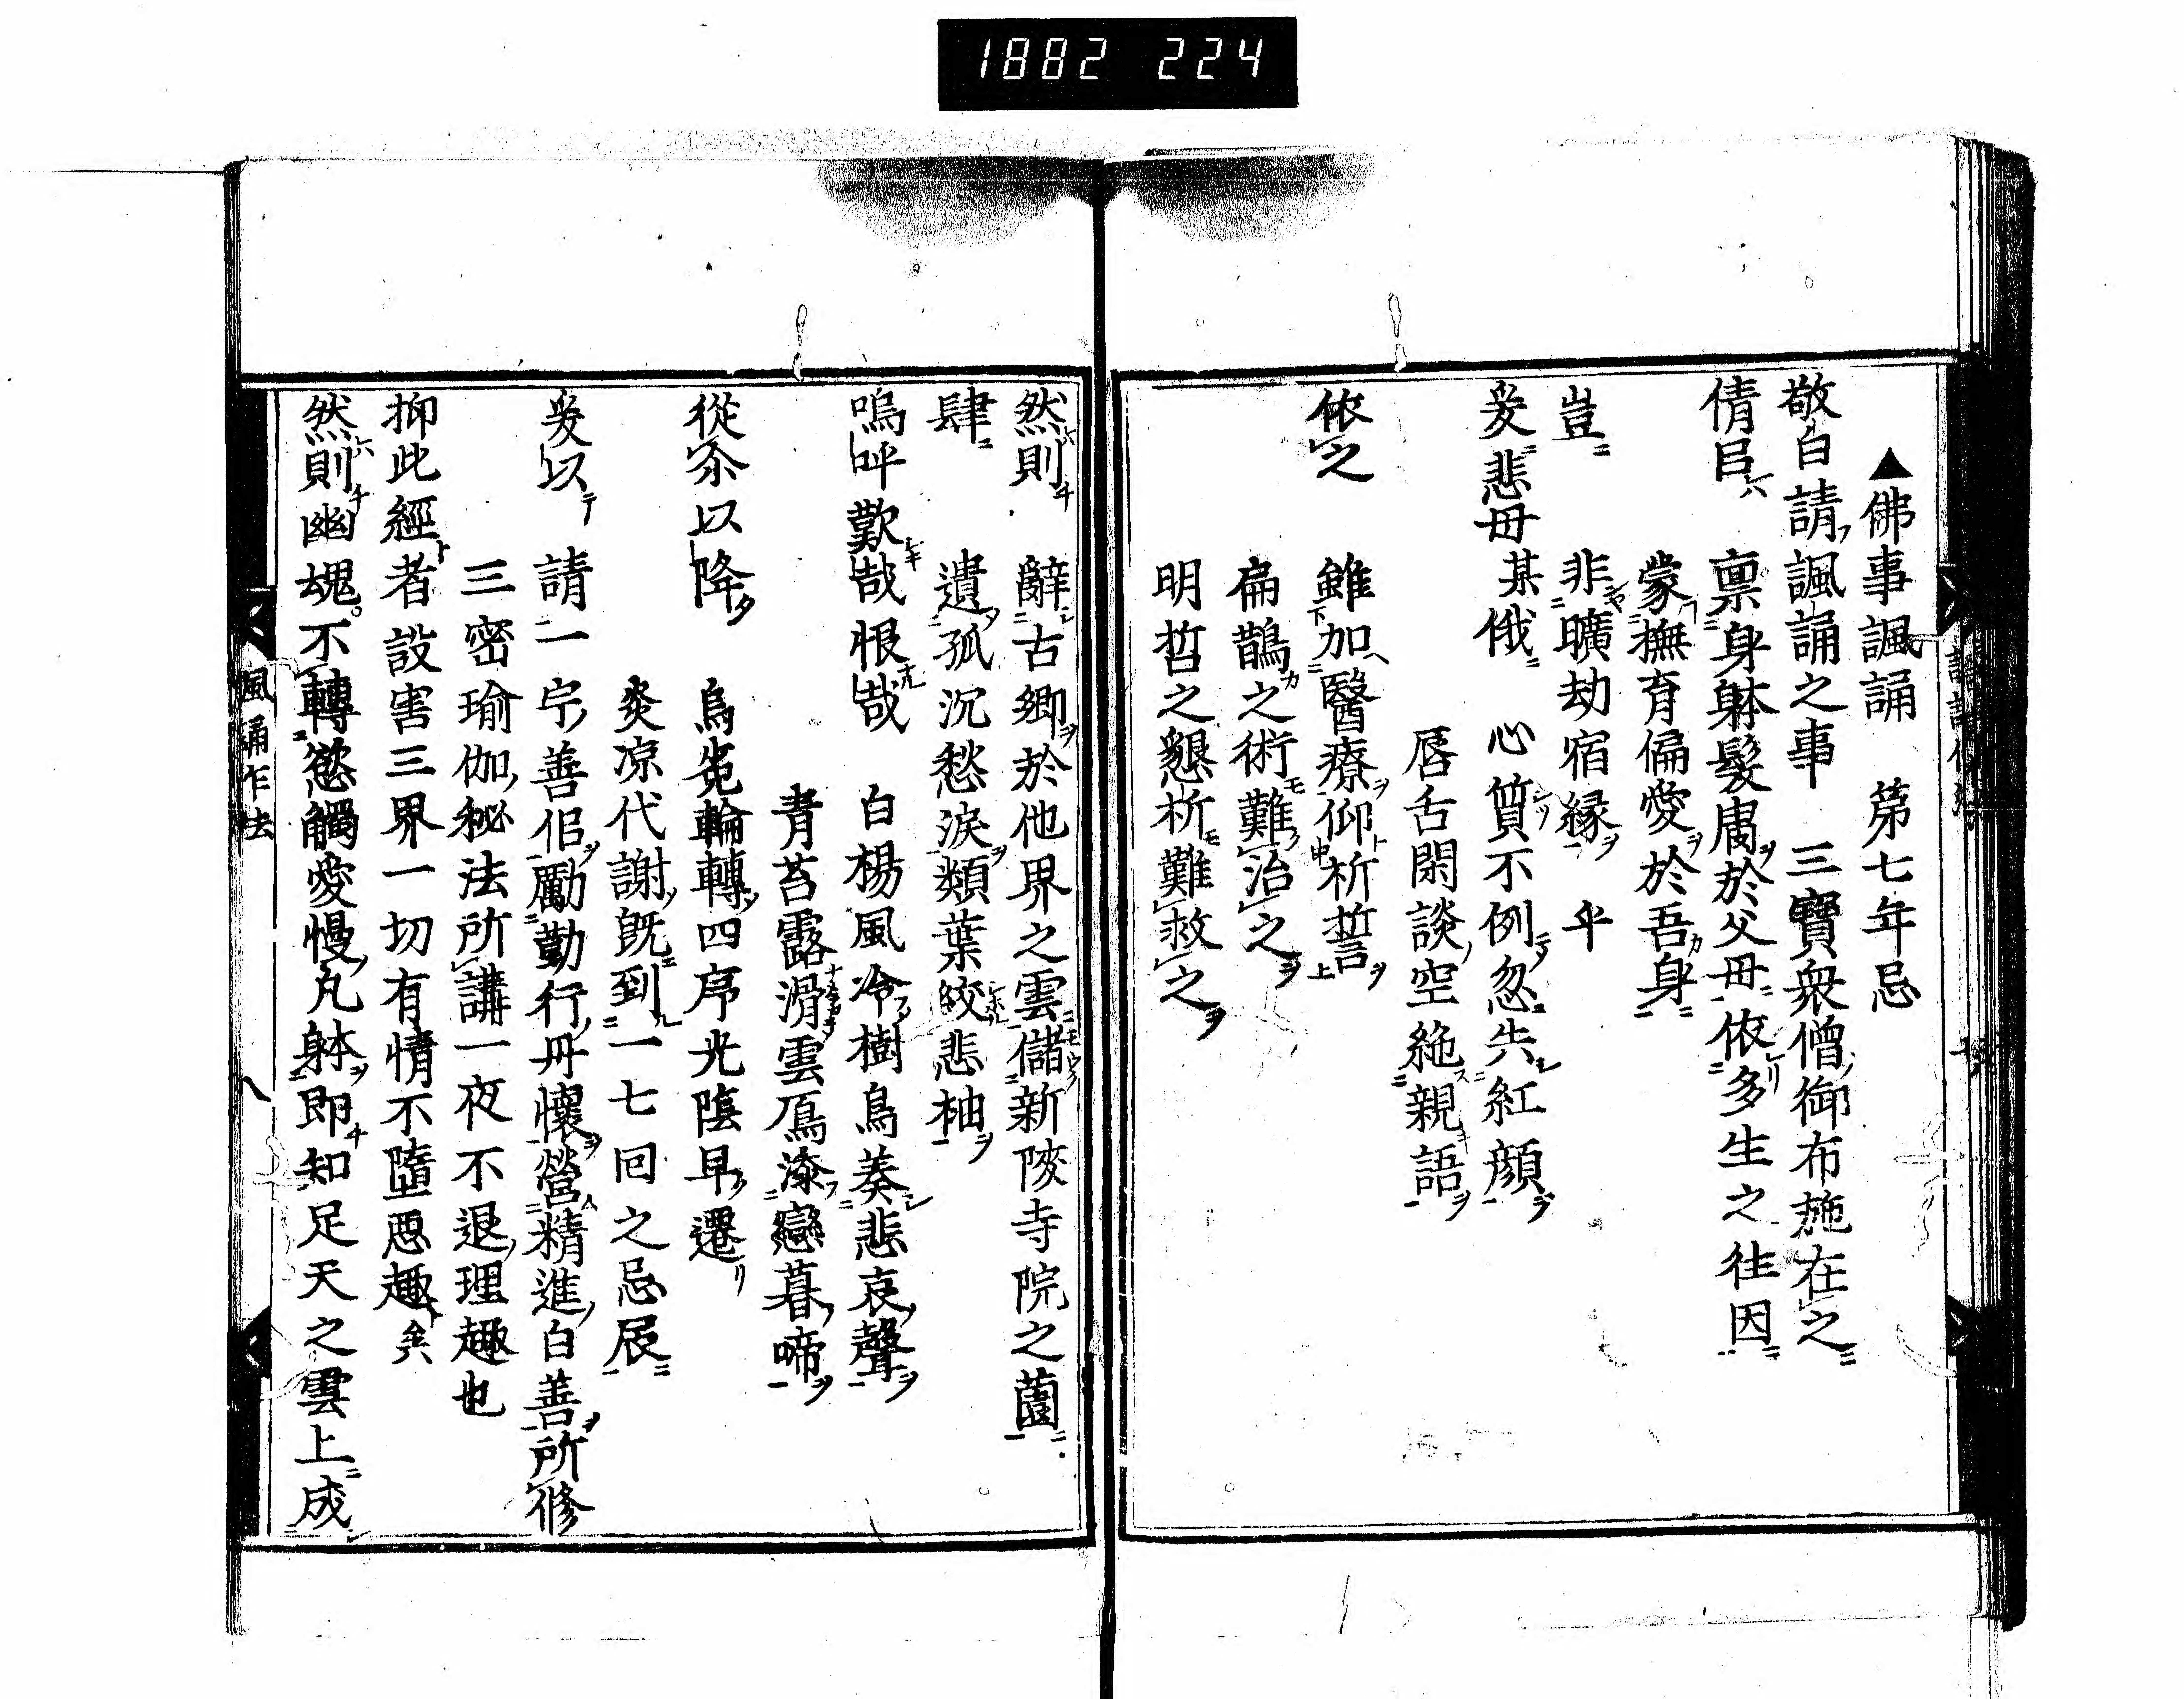 1882 224
▲佛事諷誦　第七年忌
敬白請諷誦之事　三寳衆僧御布施在之
倩㠯　禀身躰髮膚於父母依多生之往因
蒙撫育偏愛於吾身
豈　非曠劫宿縁　乎
爰悲母某俄　心質不例忽失紅顔
唇舌閑談空絶親語
依之　雖加醫療仰祈誓
扁鵲之術難治之
明哲之懇祈難救之
然則　辭古郷於他界之雲儲新陵寺院之薗
肆　遺孤沉愁淚類葉絞悲袖
嗚呼歎哉恨哉　白楊風冷樹鳥奏悲哀聲
青苔露滑雲鳫添戀暮啼
從尒以降　烏兎輪轉四序光陰早遷
炎凉代謝既到一七回之忌辰
爰以　請一宇善侶勵勤行丹懷營精進白善所修
三密瑜伽秘法所講一夜不退理趣也
抑此經者設害三界一切有情不墮惡趣
然則幽魂不轉慾觸愛慢凡躰即知足天之雲上成
風誦作法
八